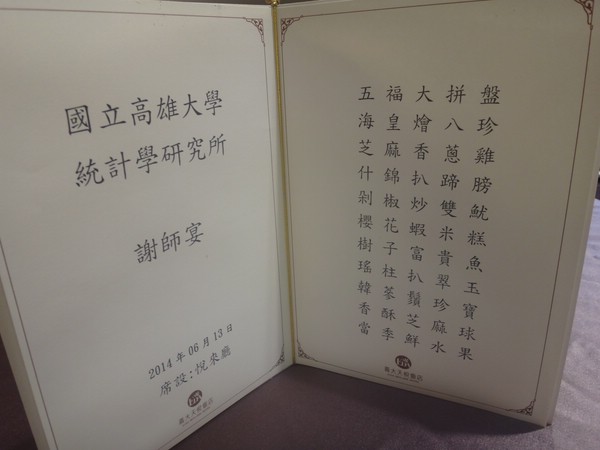 國立高雄大學
統計學研究所
謝師宴
2014年06月13日
席設:悅來廳
五福大拼盤
海皇燴八珍
芝麻香蔥雞
什錦扒蹄膀
剁椒炒雙魷
櫻花蝦米糕
樹子富貴魚
瑤柱扒翠玉
韓蔘鬚珍寶
香酥芝麻球
當季鮮水果